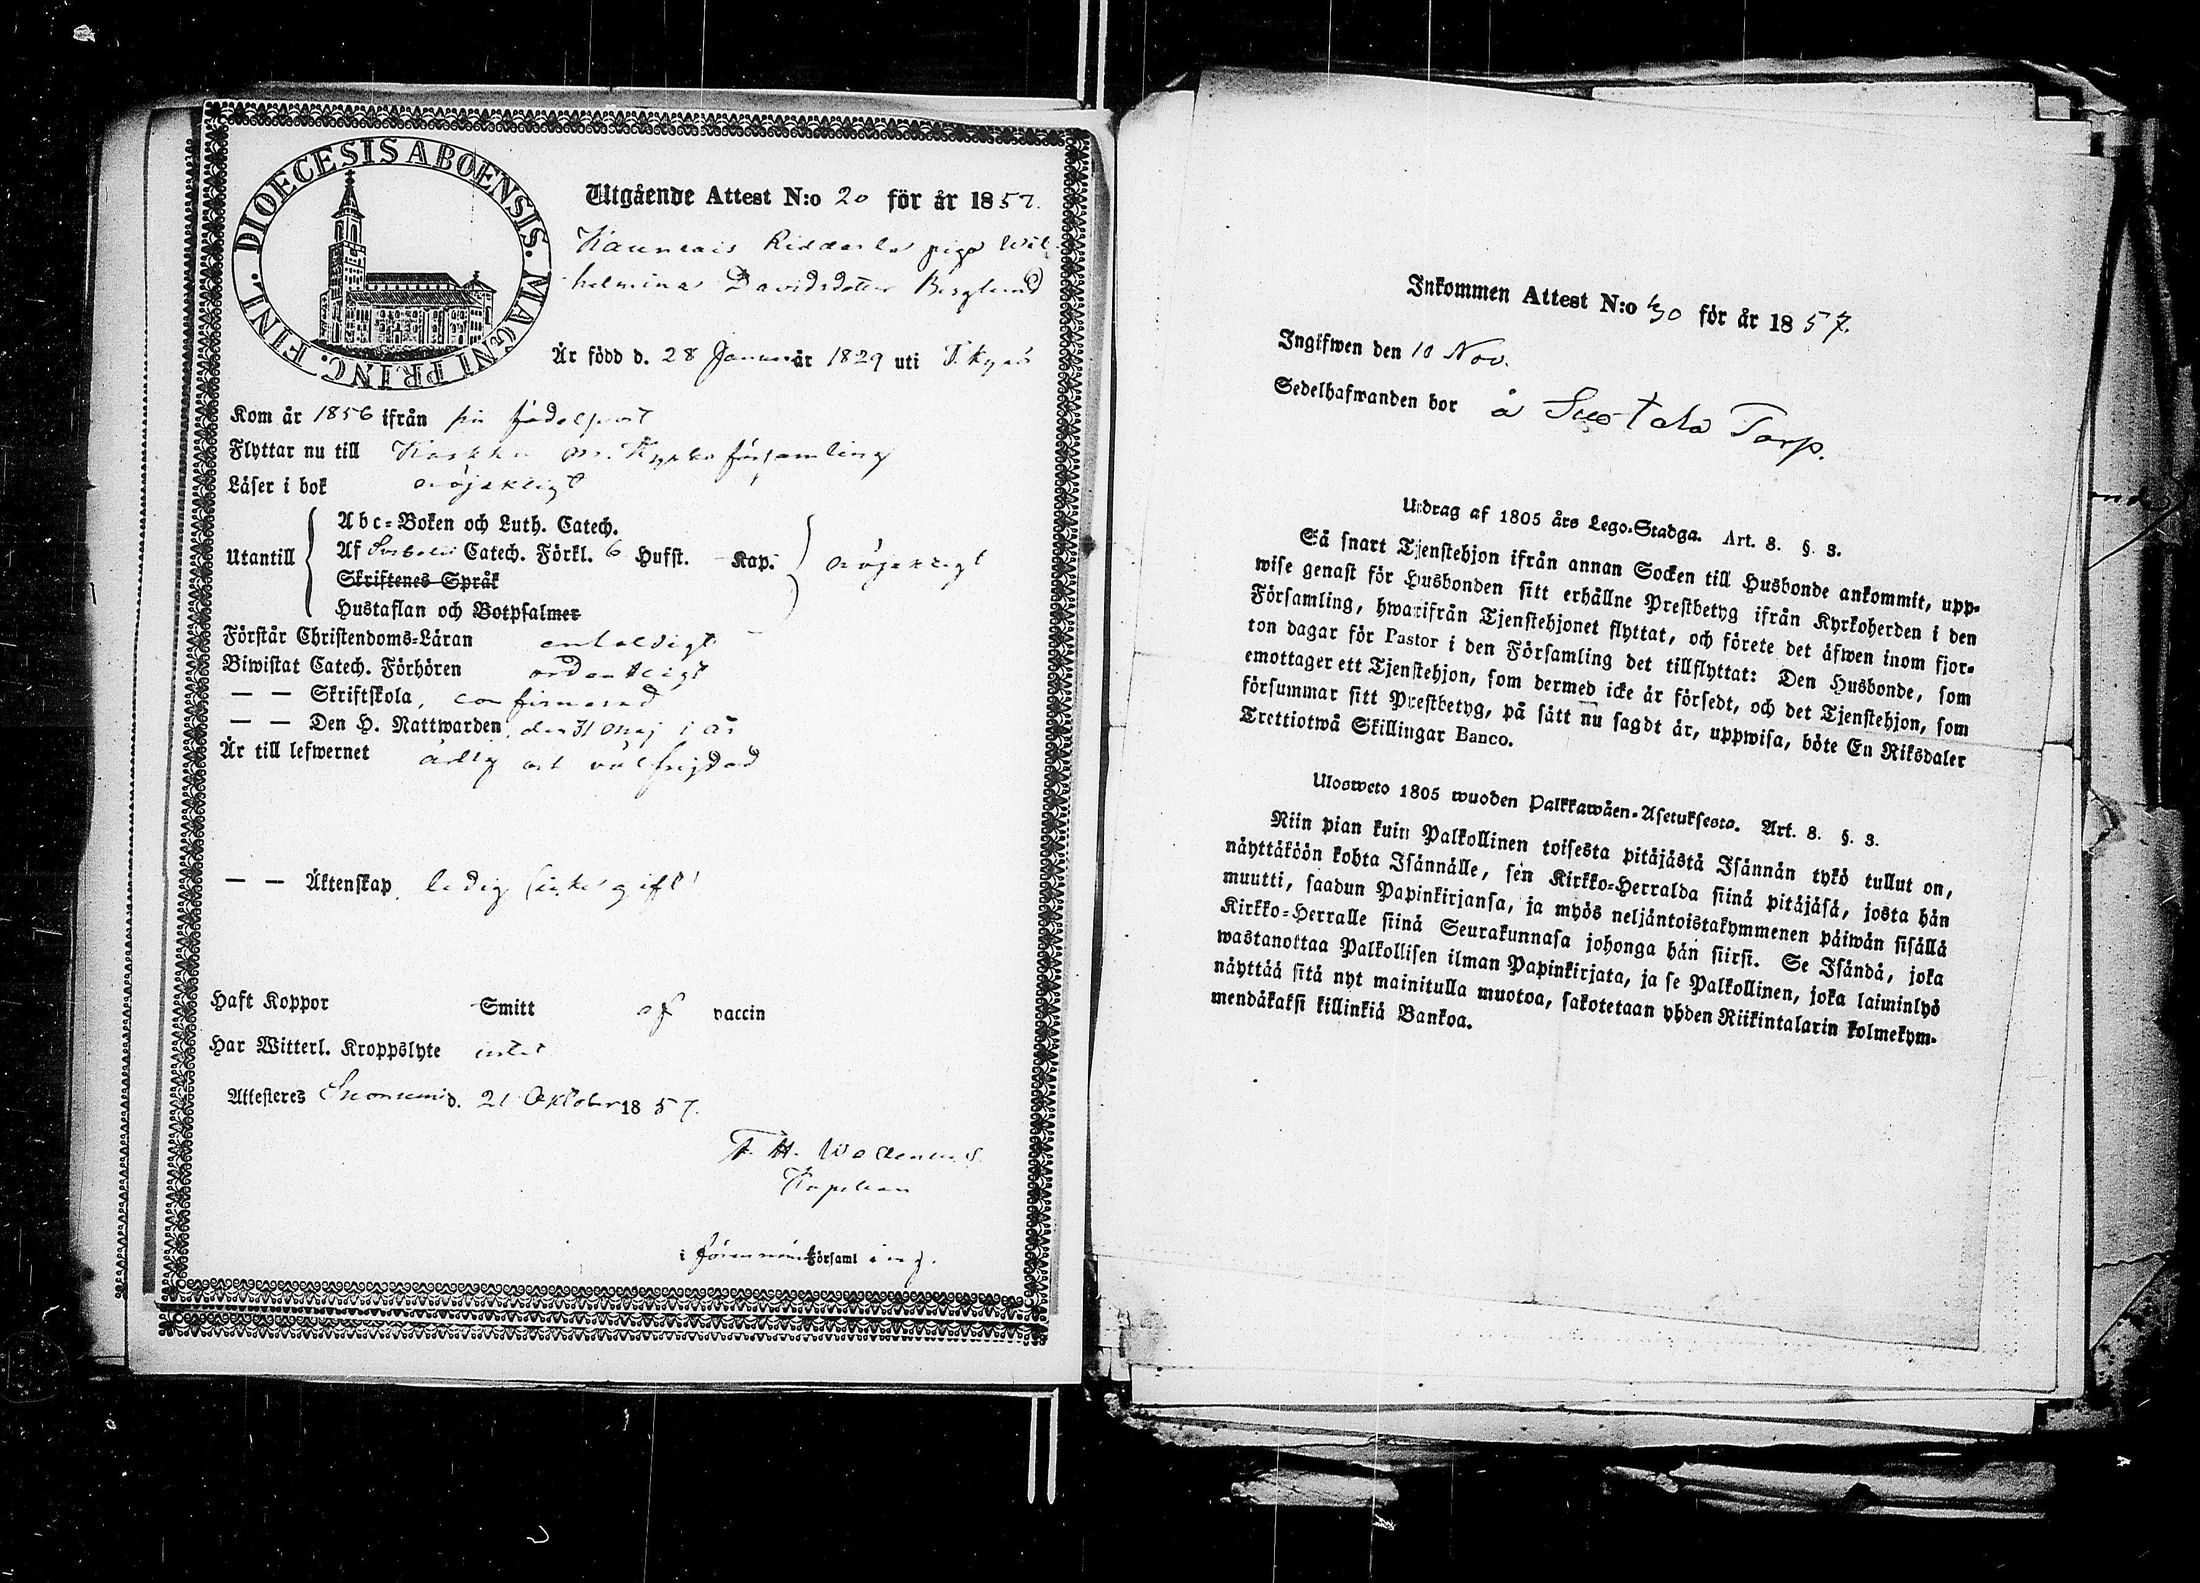 DIOECESIS ABOENSIS. MAGNI PRINC. FINL.
Utgående Attest N:o 20 för år 1857.
Ridderla piga Wil-
helmina Davidsdotter Berglund
Är född d. 28 Januar är 1829 uti T.kyrö
Kom år 1856 ifrån sin födelseort
Flyttar nu till Karkku församling
Läser i bok nöjakligt
Utantill
Abc-Boken och Luth. Catech.
Af Svebelii Catech. Förkl. 6 Hufst. Kap. nöjakligt
Skriftenes Språk
Hustaflan och Botpsalmer
Förstår Christendoms-Läran enfaldigt
Biwistat Catech. Förhören ordentligt
— — Skriftskola, confirmerad
— — Den H. Nattwarden, den 31 Maj i år
Är till lefwernet ärlig och välfrejdad
— — Äktenskap, ledig (icke gift)
Haft Koppor Smitt af vaccin
Har Witterl. Kroppslyte intet
Attesteres Suoniemi d. 21 Oktober 1857.
Kapellan
i församl ing.
Inkommen Attest N:o 30 för år 1857.
Ingifwen den 10 Nov.
Sedelhafwanden bor å Torp.
Utdrag af 1805 års Lego-Stadga. Art. 8. §. 3.
Så snart Tjenstehjon ifrån annan Socken till Husbonde ankommit, upp-
wise genast för Husbonden sitt erhållne Prestbetyg ifrån Kyrkoherden i den
Församling, hwarifrån Tjenstehjonet flyttat, och förete det äfwen inom fjor-
ton dagar för Pastor i den Församling det tillflyttat: Den Husbonde, som
emottager ett Tjenstehjon, som dermed icke är försedt, och det Tjenstehjon, som
försummar sitt Prestbetyg, på sätt nu sagdt är, uppwisa, böte En Riksdaler
Trettiotwå Skillingar Banco.
Ulosweto 1805 wuoden Palkkawäen-Asetuksesta. Art. 8. §. 3.
Niin pian kuin Palkollinen toisesta pitäjästä Isännän tykö tullut on,
näyttäköön kohta Isännälle, sen Kirkko-Herralda siinä pitäjäsä, josta hän
muutti, saadun Papinkirjansa, ja myös neljäntoistakymmenen päiwän sisällä
Kirkko-Herralle siinä Seurakunnasa johonga hän siirsi. Se Isändä, joka
wastanottaa Palkollisen ilman Papinkirjata, ja se Palkollinen, joka laiminlyö
näyttää sitä nyt mainitulla muotoa, sakotetaan yhden Riikintalarin kolmekym-
mendäkaksi killinkiä Bankoa.